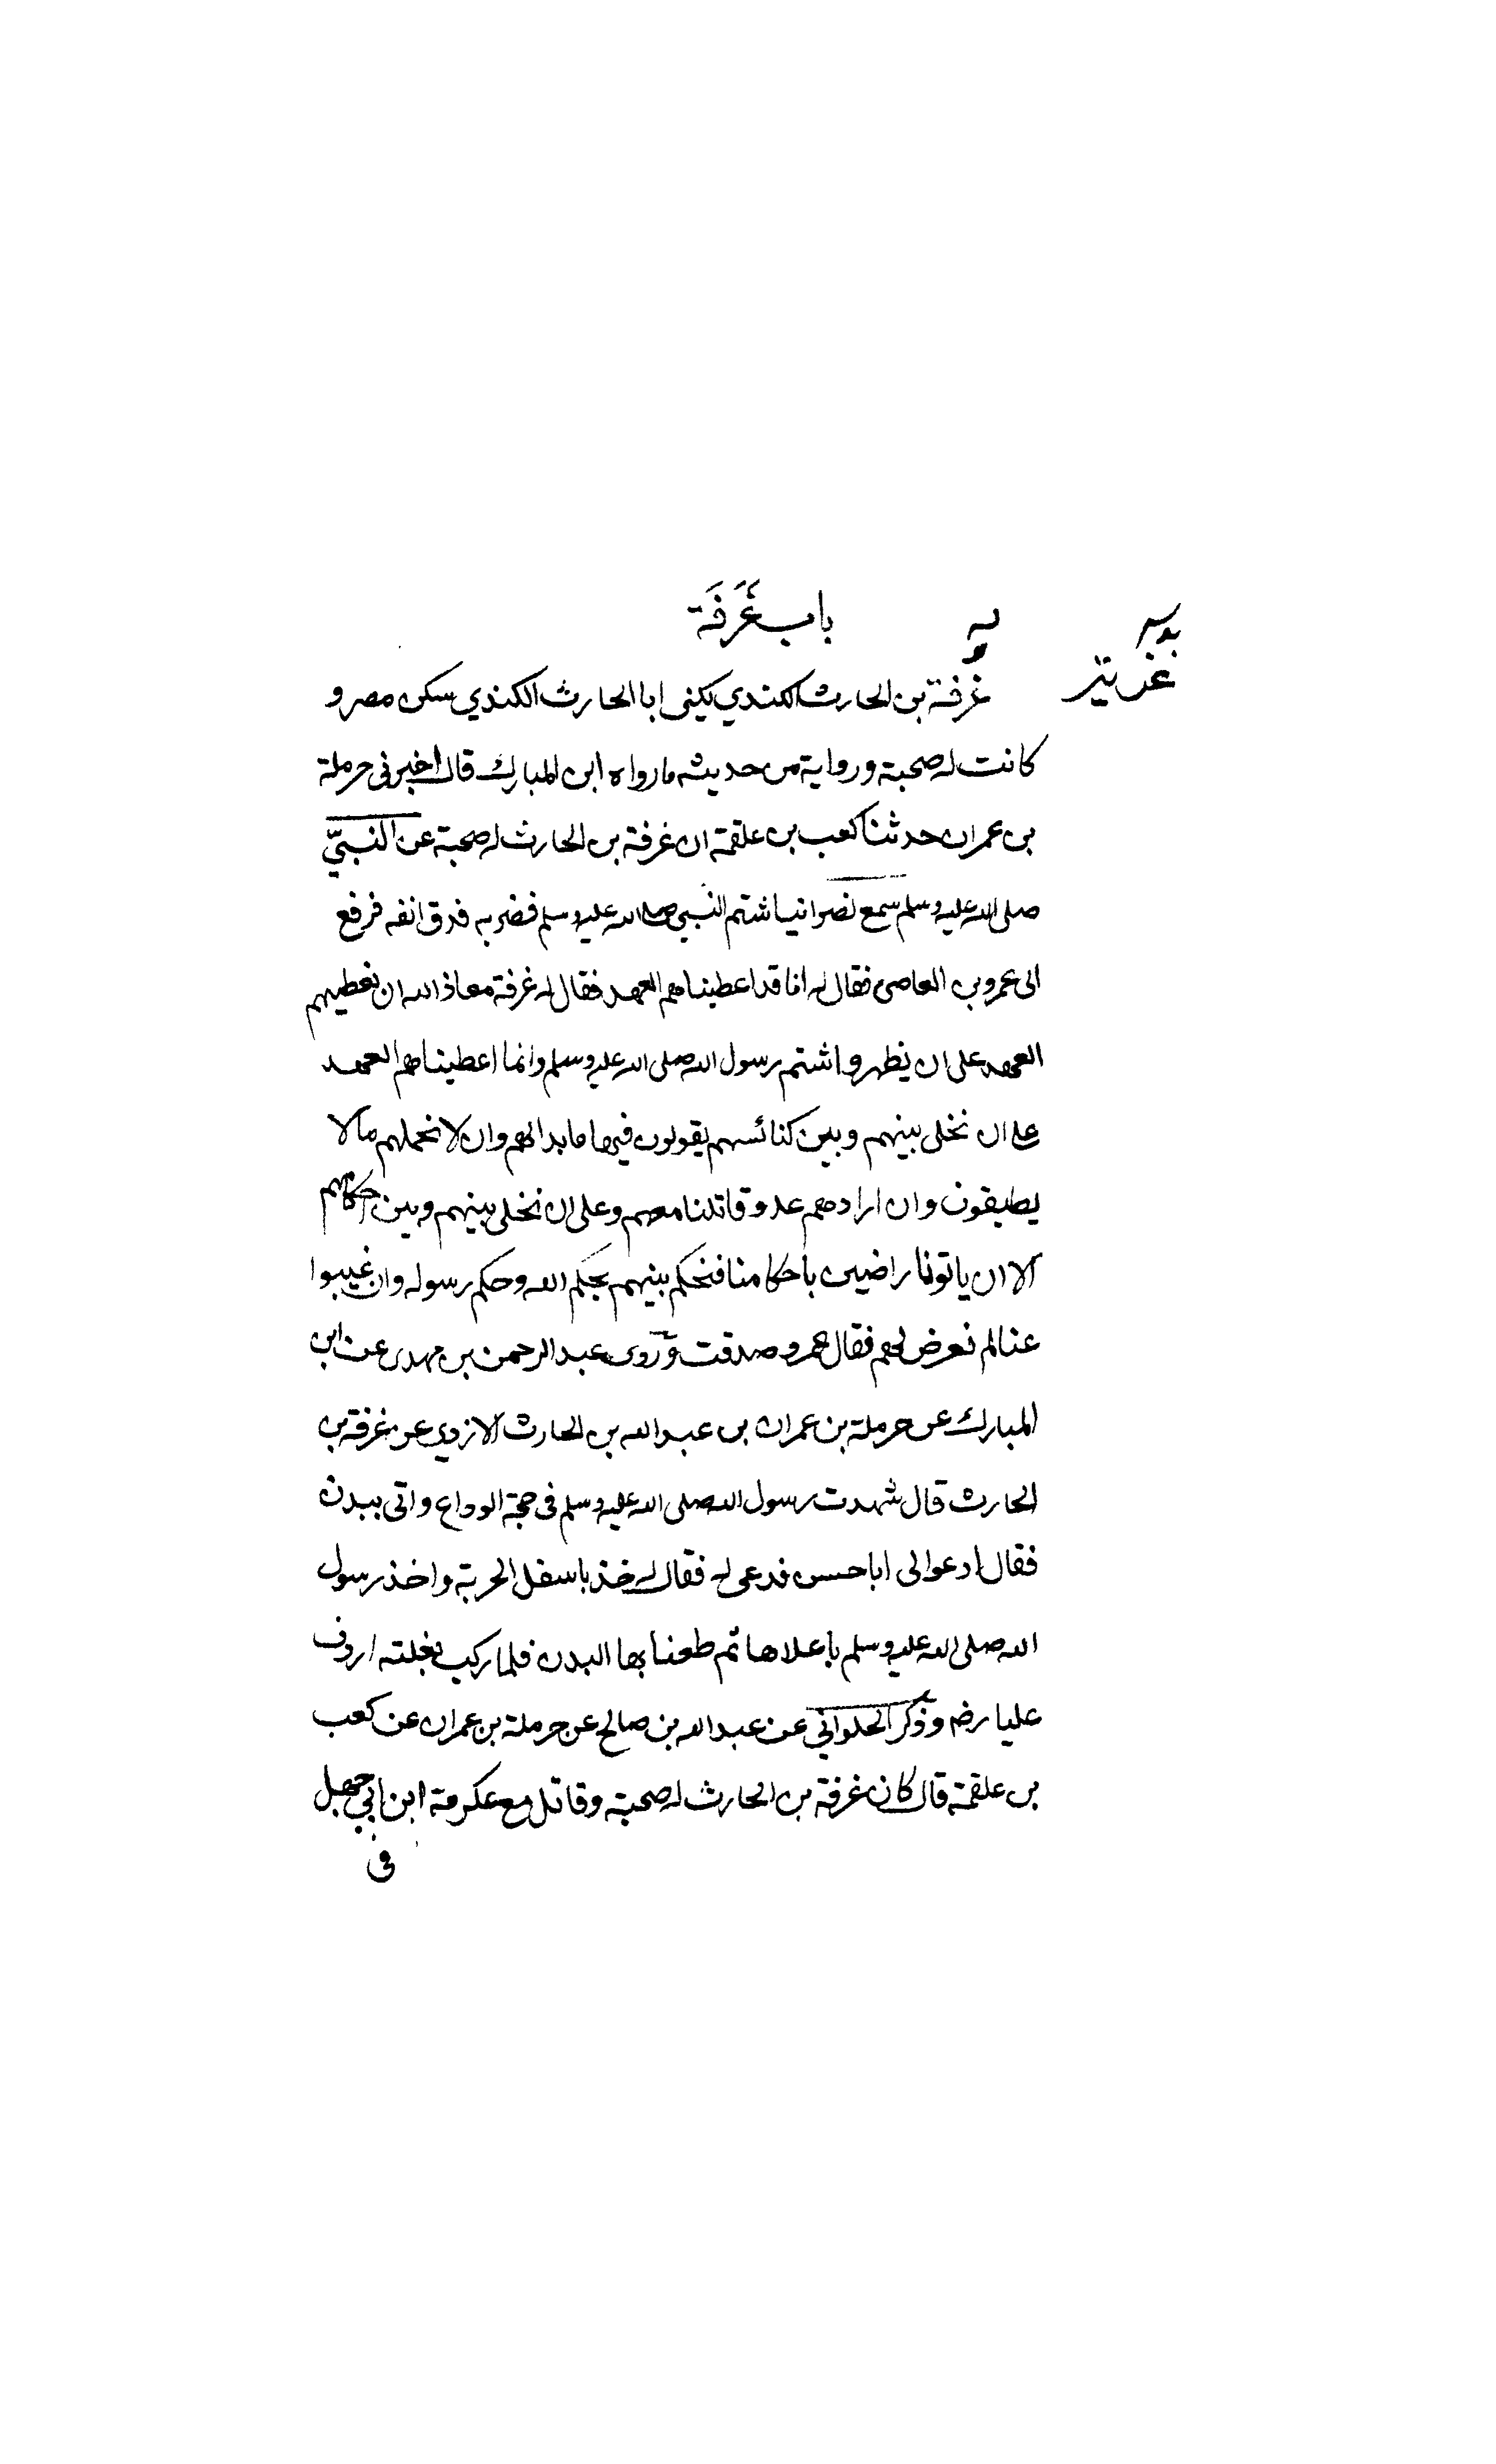 باب غَرَفَة
غرفة بن الحارث الكندي يكنى ابا الحارث الكندي سكن مصر و
كانت له صحبة ورواية من حديثه ما رواه ابن المبارك قال اخبرنى حرملة
بن عمران حدثنا كعب بن علقمة ان غرفة بن الحارث له صحبة عن النبيّ
صلى الله عليه وسلم سمع نصرانيا شتم النبي صلى الله عليه وسلم فضربه فدق انفه فرفع
الى عمرو بن العاصى فقال له انا قد اعطيناهم العهد فقال له غرفة معاذ الله ان نعطيهم
العهد على ان يظهروا شتم رسول الله صلى الله عليه وسلم وانما اعطيناهم العهد
على ان نخلى بينهم وبين كنائسهم يقولون فيها ما بدا لهم وان لا نحملهم مالا
يطيقون وان ارادهم عدو قاتلنا معهم وعلى ان نخلى بينهم وبين احكامهم
الا ان ياتونا راضين باحكامنا فنحكم بينهم بحكم الله وحكم رسوله وان غيبوا
عنا لم نعرض لهم فقال عمرو صدقت وروى عبد الرحمن بن مهدى عن ابن
المبارك عن حرملة بن عمران بن عبد الله بن الحارث الازدي عن غرفة بن
الحارث قال شهدت رسول الله صلى الله عليه وسلم فى حجة الوداع واتى ببدن
فقال ادعوا لى ابا حسن فدعى له فقال له خذ باسفل الحربة واخذ رسول
الله صلى الله عليه وسلم باعلاها ثم طعنا بها البدن فلما ركب بغلته اردف
عليا رضه وذكر الحلواني عن عبد الله بن صالح عن حرملة بن عمران عن كعب
بن علقمة قال كان غرفة بن الحارث له صحبة وقاتل مع عكرمة ابن ابي جهل
فى